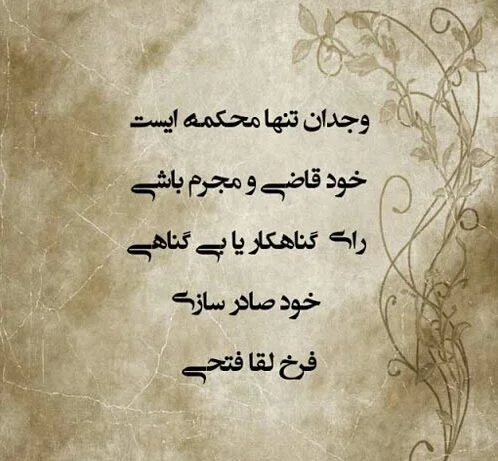 وجدان تنها محکمه ایست
خود قاضی و مجرم باشی
رای گناهکار یا بی گناهی
خود صادر سازی
فرخ لقا فتحی